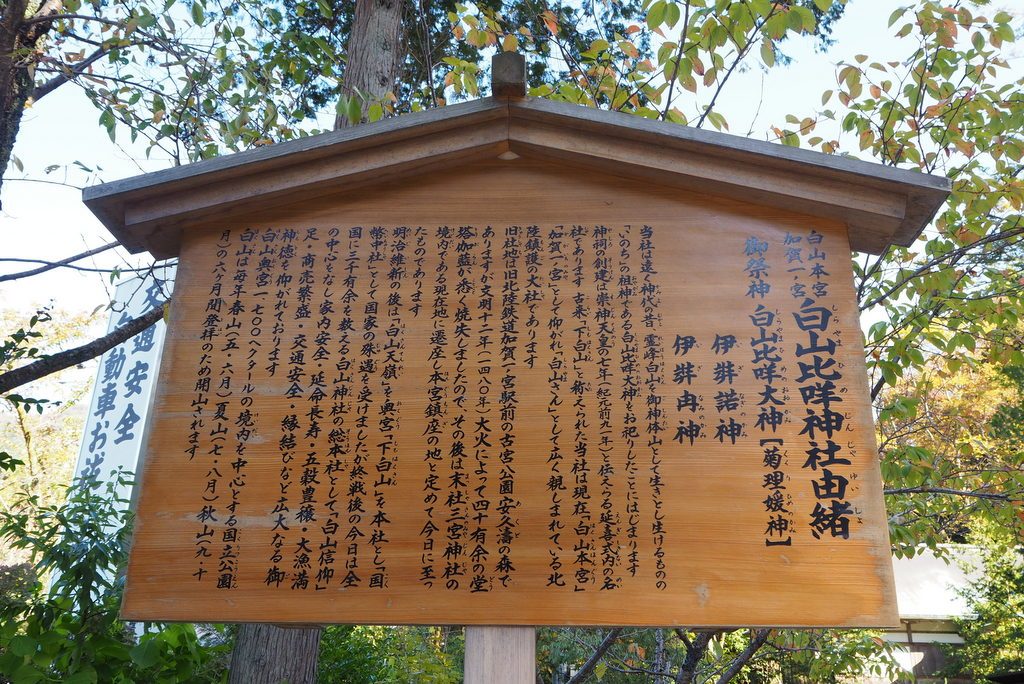 白山本宮
加賀一宮
白山比咩神社由緒
御祭神 白山比咩大神【菊理媛神】
伊弉諾神
伊弉冉神
当社は遠く神代の昔、霊峰白山を御神体山として生きとし生けるものの
「いのち」の祖神である白山比咩大神をお祀りしたことにはじまります
神祠の創建は崇神天皇の七年（紀元前九一）と伝えらる延喜式内の名
社であります 古来、「下白山」と称えられた当社は現在、「白山本宮」
「加賀一宮」として仰がれ「白山さん」として広く親しまれている北
陸鎮護の大社であります
旧社地は旧北陸鉄道加賀一宮駅前の古宮公園安久濤の森で
ありますが文明十二年（一四八〇年）大火によって四十有余の堂
塔伽藍が悉く焼失しましたので、その後は末社三宮神社の
境内である現在地に遷座し本宮鎮座の地と定めて今日に至っ
たものであります
明治維新の後は「白山天嶺」を奥宮「下白山」を本社とし「国
幣中社」として国家の殊遇を受けましたが終戦後の今日は全
国に三千有余を数える白山神社の総本社として"白山信仰"
の中心をなし家内安全・延命長寿・五穀豊穣・大漁満
足・商売繁盛・交通安全・縁結びなど広大なる御
神徳を仰がれております
白山奥宮一七〇〇ヘクタールの境内を中心とする国立公園
白山は毎年春山（五・六月）夏山（七・八月）秋山（九・十
月）の六ヶ月間登拝のため開山されます
交通安全
自動車お祓